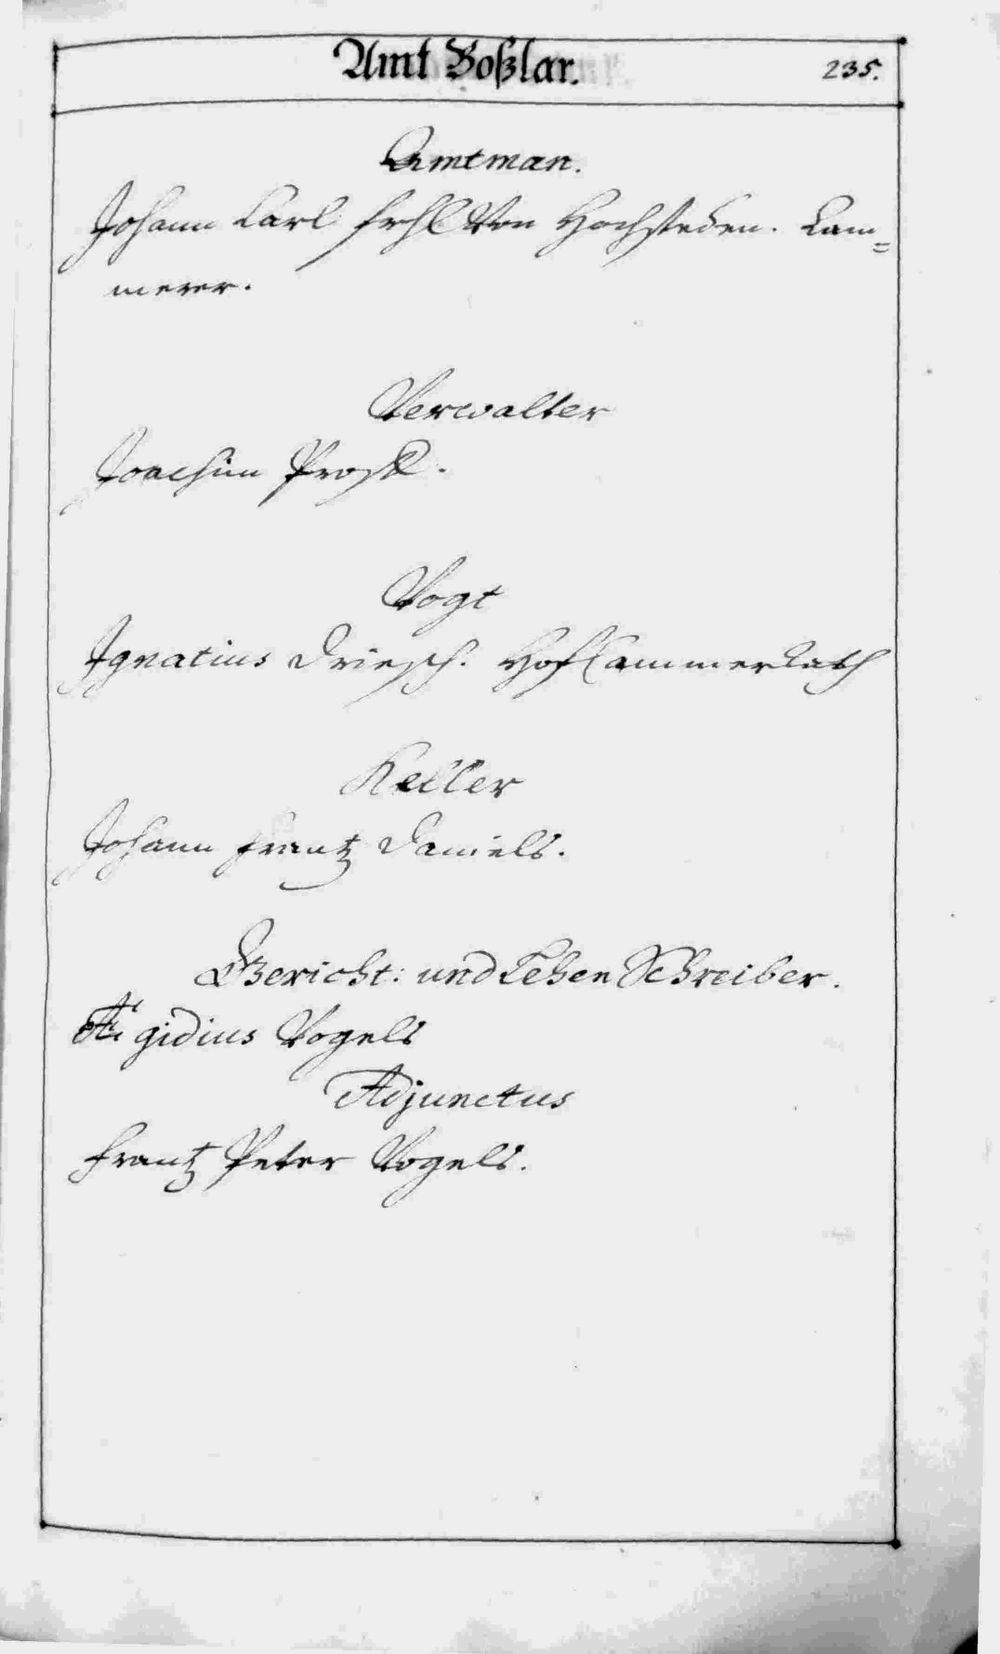 Amt Boßlar.
235.
Amtman.
Johann Carl frhl Von Hochsteden. Cam=
merer.
Verwalter
Joachim
Vogt
Ignatius Driesch. HofCammerRath
Keller
Johann Frantz Daniels.
Gericht: und Lehen Schreiber.
Ægidius Vogels
Adjunctus
Frantz Peter Vogels.